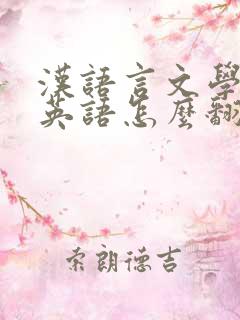 漢語言文學
英語怎麼翻
索朗德吉